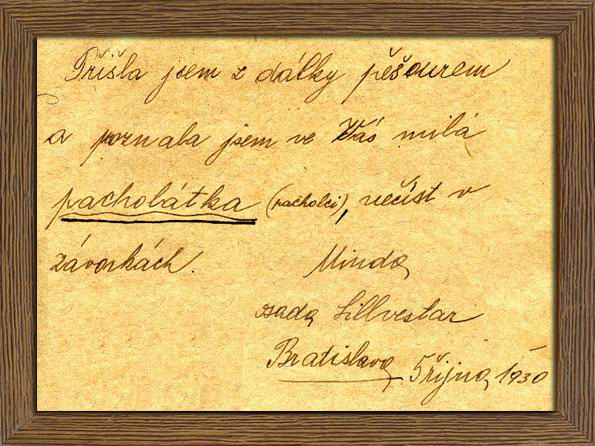 Přišla jsem z dálky pěšourem
a poznala jsem ve Vás milá
pacholátka (pacholci), nečíst v
závorkách.
Minda
sada Sillvestar
Bratislava, 5 října 1930